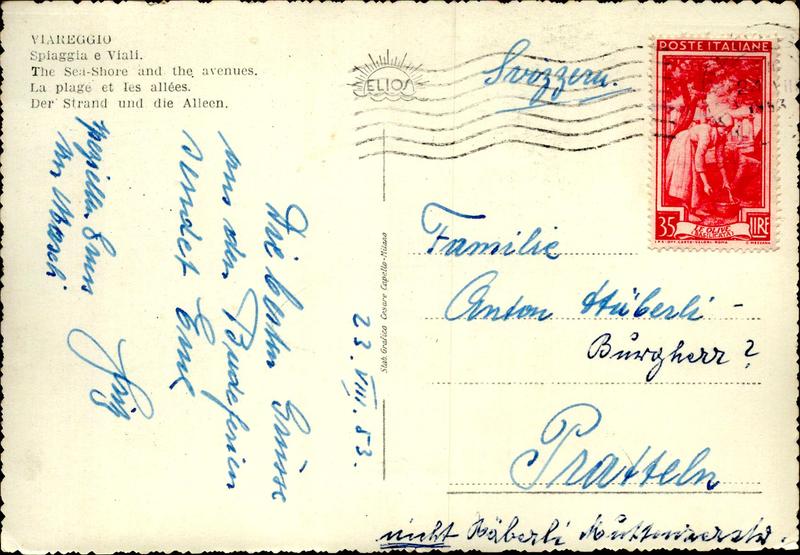 VIAREGGIO
Spiaggia e Viali.
The Sea-Shore and the avenues.
La plage et les allées.
Der Strand und die Alleen.
ELIOS
Svizzera.
POSTE ITALIANE
35 LIRE
LE OLIVE
(BASILICATA)
23.VIII.53.
Die besten Grüsse
aus den Badeferien
sendet Euch
Fritz
Stab. Grafico Cesare Capello-Milano
Familie
Anton Hüberli -
Burgherr?
Pratteln
nicht Häberli Muttenzerstr.